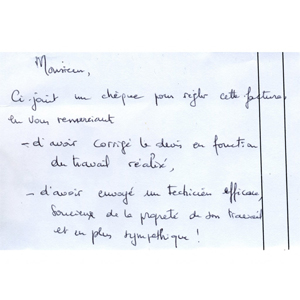 Monsieur,
Ci-joint un chèque pour régler cette facture
en vous remerciant
- d'avoir corrigé le devis en fonction
du travail réalisé,
- d'avoir envoyé un technicien efficace,
soucieux de la propreté de son travail
et en plus sympathique !